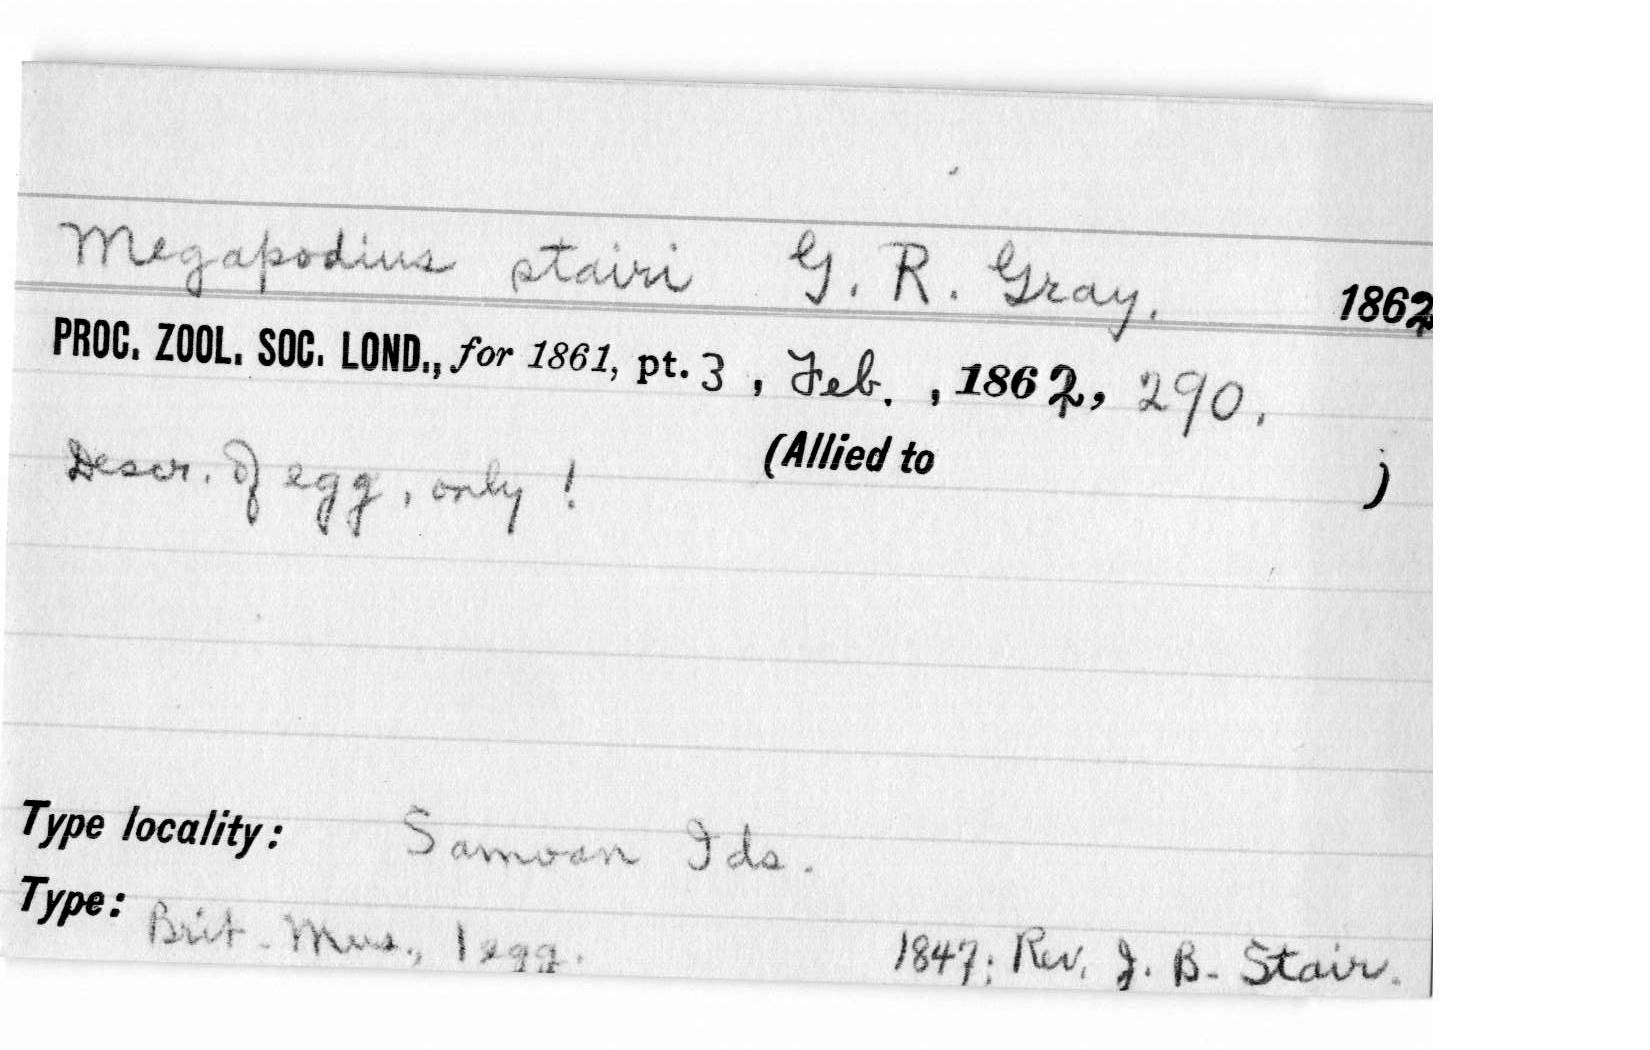 Megapodius stairi G. R. Gray. 1862
PROC. ZOOL. SOC. LOND., for 1861, pt. 3, Feb., 1862, 290.
(Allied to )
Descr. of egg, only!
Type locality: Samoan Ids.
Type: Brit. Mus., 1 egg. 1847; Rev. J. B. Stair.